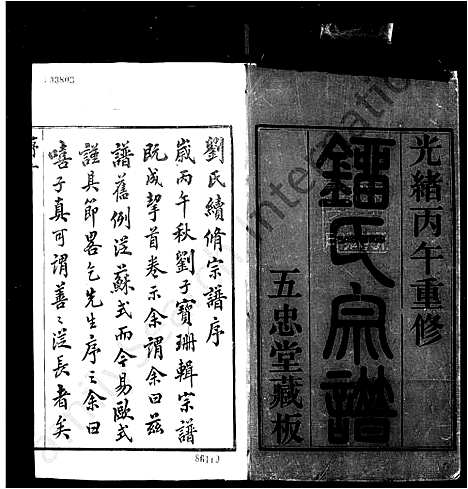 光緒丙午重修
鐂氏宗譜
五忠堂藏板
劉氏續脩宗譜序
歲丙午秋劉子寶珊輯宗譜
既成挈首卷示余謂余曰茲
譜舊例從蘇式而今易歐式
謹具節畧乞先生序之余曰
嘻子真可謂善々從長者矣